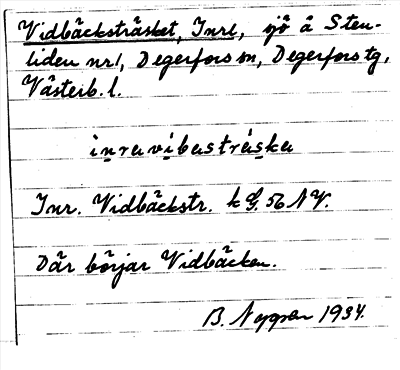 Vidbäcksträsket, Inrl, sjö å Sten-
liden nr1, Degerfors sn, Degerfors tg,
Västerb. l.
inravibastráska
Inr. Vidbäckstr. k 56 NV.
Där börjar Vidbäcken.
B. Nygren 1934.